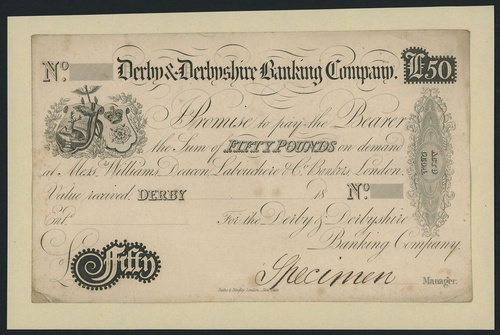 No. Derby & Derbyshire Banking Company. £50.
I Promise to pay the Bearer
the Sum of FIFTY POUNDS on demand
at Messrs. Williams, Deacon, Labouchere & Co. Bankers London.
Value received. DERBY 18 No.
Entd. For the Derby & Derbyshire
Banking Company.
£ Fifty
Specimen Manager.